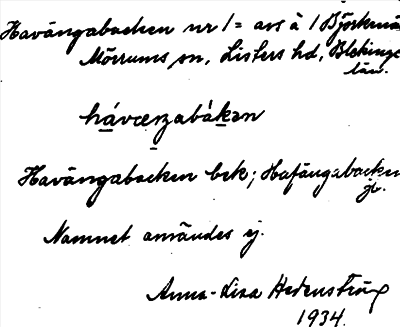 Havängabacken nr 1 = avs å 1 Björkenäs
Mörrums sn, Listers hd, Blekinge
län.
hávæŋabákan
Havängabacken bek; Hafängabacken
jb.
Namnet användes ej.
Anna-Lisa Hedenström
1934.